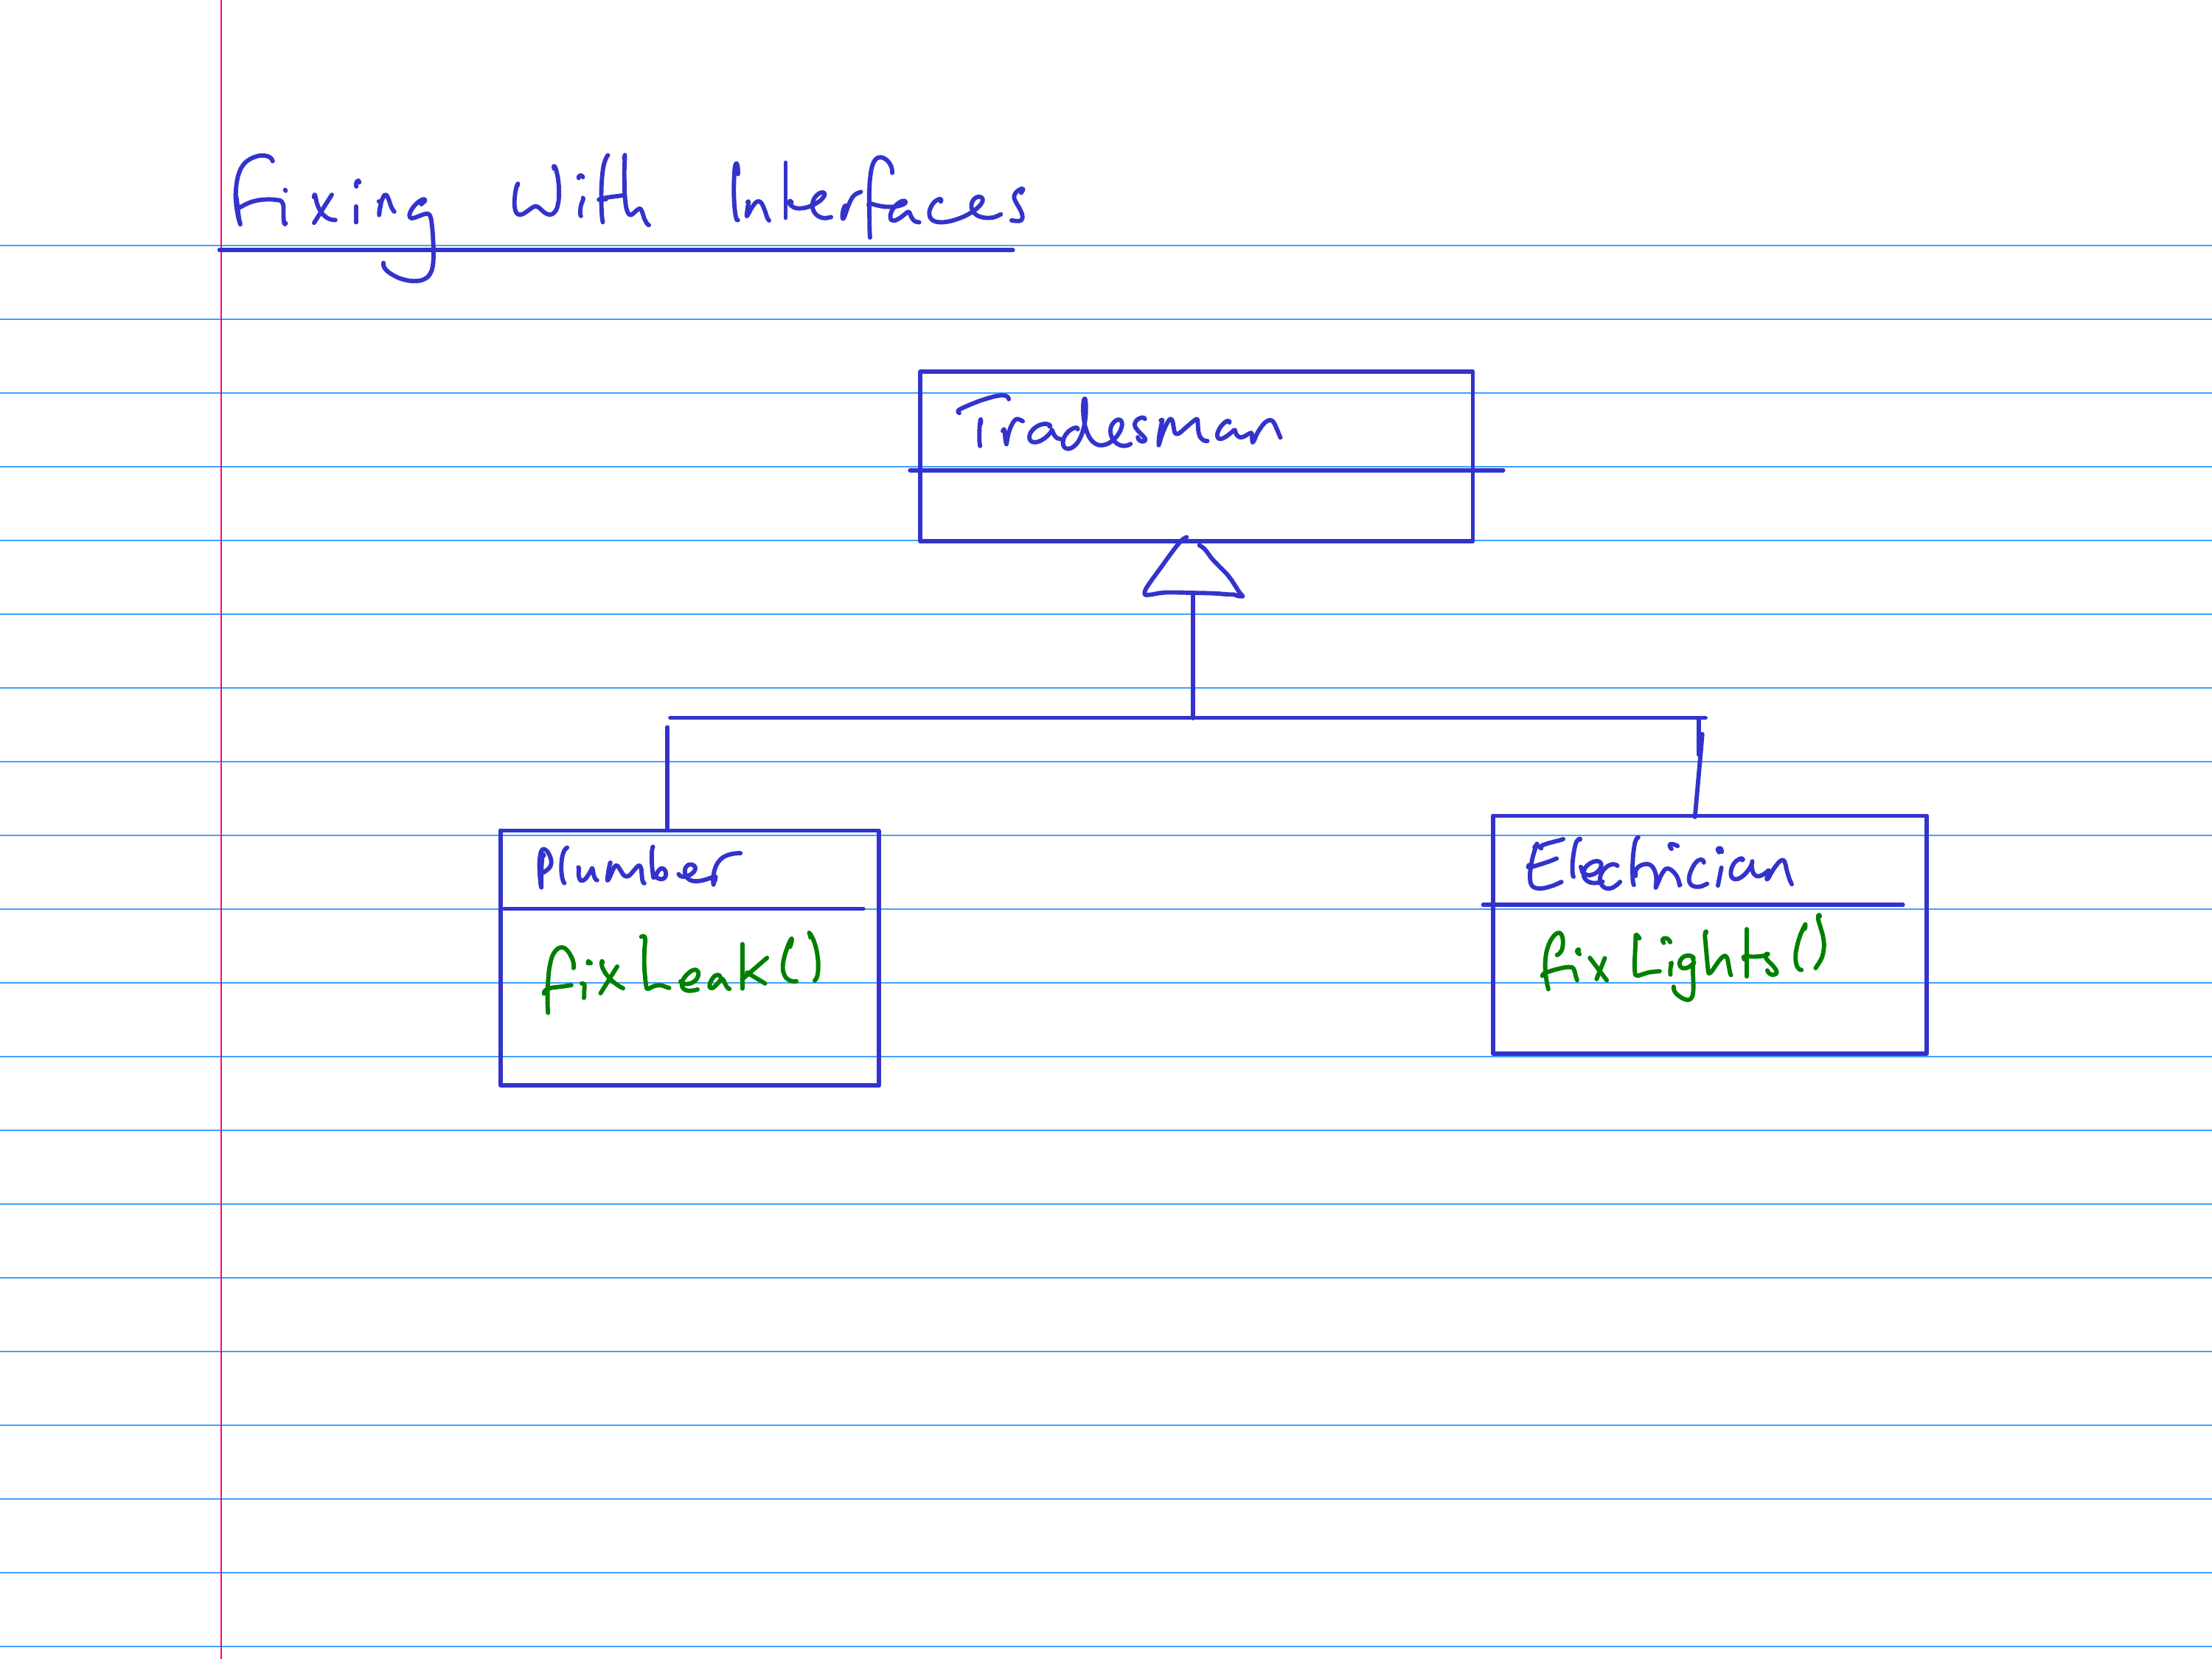 Fixing With Interfaces
Tradesman
Plumber
fixLeak()
Electrician
fixLights()